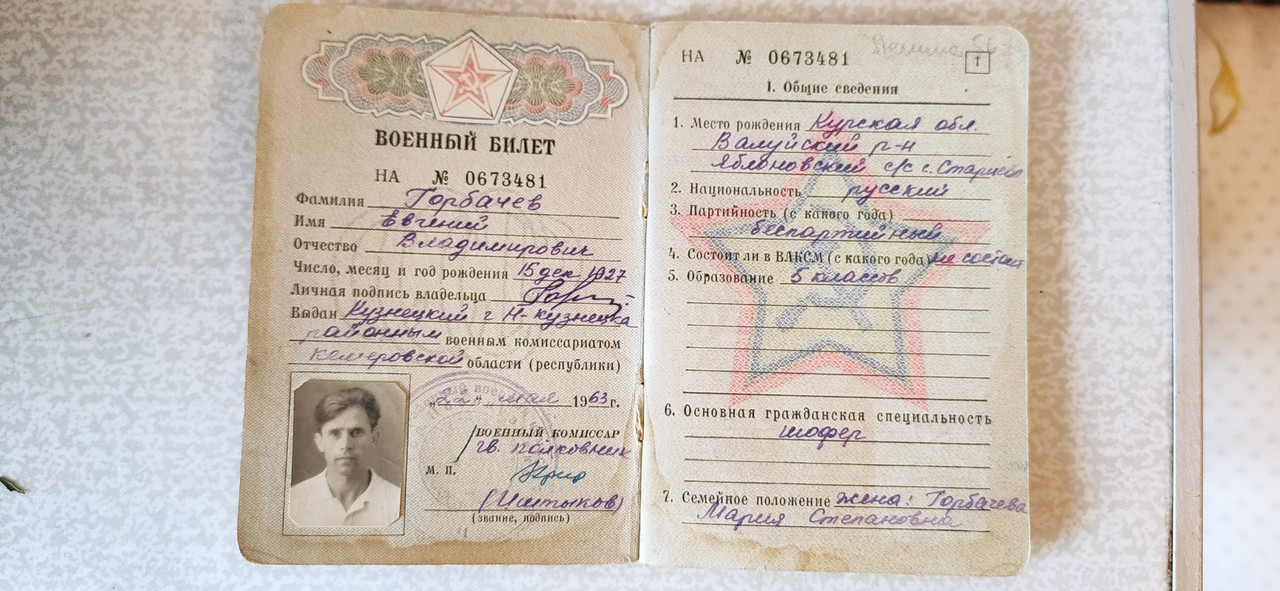 ВОЕННЫЙ БИЛЕТ
НА № 0673481
Фамилия Горбачев
Имя Евгений
Отчество Владимирович
Число, месяц и год рождения 15 дек 1927
Личная подпись владельца
Выдан Кузнецкий г Н-кузнецка
районным военным комиссариатом
кемеровской области (республики)
„22" мая 1963 г.
ВОЕННЫЙ КОМИССАР
гв. полковник
М. П.
(звание, подпись)
НА № 0673481
1
1. Общие сведения
1. Место рождения Курская обл.
Валуйский р-н
Яблоновский с/с с.
2. Национальность русский
3. Партийность (с какого года)
беспартийный
4. Состоит ли в ВЛКСМ (с какого года) не состоит
5. Образование 5 классов
6. Основная гражданская специальность
шофер
7. Семейное положение жена: Горбачева
Мария Степановна